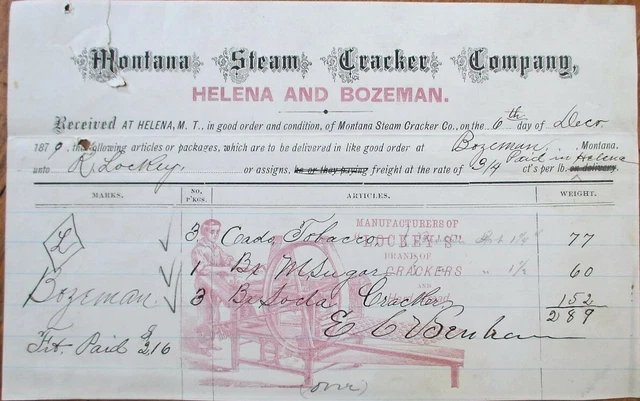 Montana Steam Cracker Company,
HELENA AND BOZEMAN.
Received AT HELENA, M. T., in good order and condition, of Montana Steam Cracker Co., on the 6th day of Decr
1879, the following articles or packages, which are to be delivered in like good order at Bozeman, Montana.
unto R. Lockey, or assigns, he or they paying freight at the rate of 3/4 ct's per lb. Paid in Helena on delivery.
MARKS. NO. P'KGS. ARTICLES. WEIGHT.
MANUFACTURERS OF
L 3 Cads Tobacco LOCKEY'S 77
BRAND OF
1 Bx M Sugar CRACKERS 60
AND
Bozeman 3 Bx Soda Crackers 152
289
E C Benham
Frt. Paid 2 16
(over)